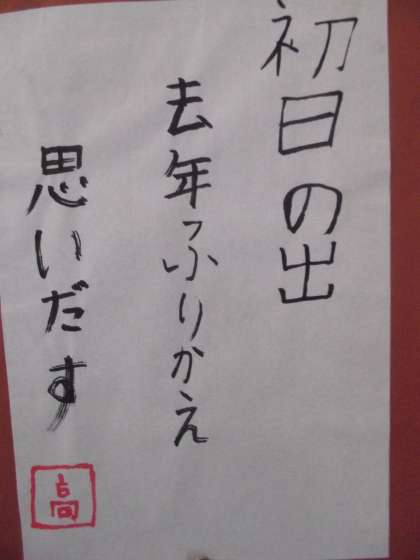 初日の出
去年ふりかえ
思いだす
高